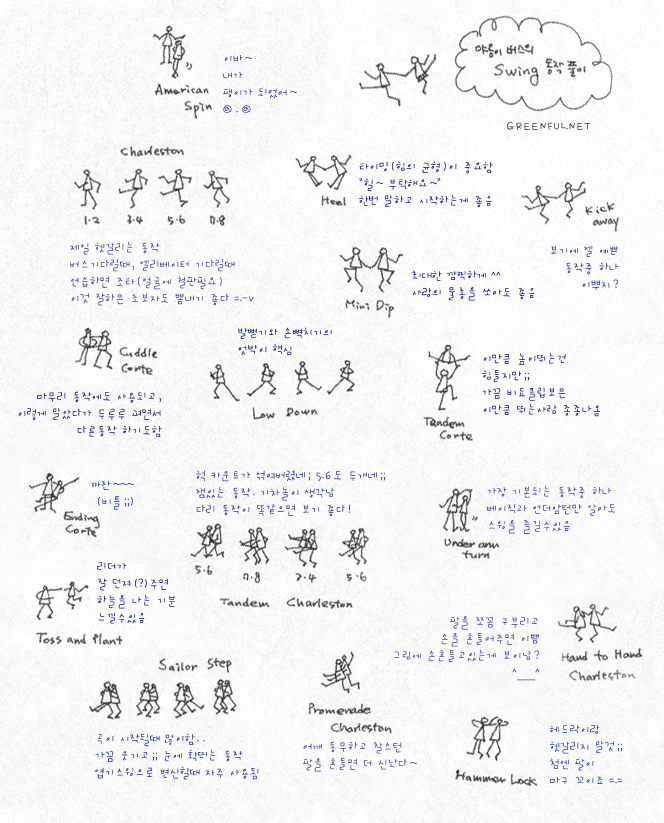 야옹이 버스의
Swing 동작 풀이
GREENFUL.NET
American
Spin
이바~
내가
팽이가 되었어~
@.@
Charleston
1.2 3.4 5.6 7.8
제일 헷갈리는 동작
버스기다릴때, 엘리베이터 기다릴때
연습하면 조타(얼굴에 철판필요)
이것 잘하은 초보자도 뽐내기 좋다 =.-v
Heel
타이밍(힘의 균형)이 중요함
"힐~ 부탁해요~"
한번 말하고 시작하는게 좋음
Kick
away
보기에 젤 예쁜
동작중 하나
이뿌지?
Mini Dip
최대한 깜찍하게 ^^
사람의 물총을 쏘아도 좋음
Cuddle
Corte
마무리 동작에도 사용되고,
이렇게 말았다가 두루루 펴면서
다른동작 하기도함
발뻗기와 손뼉치기의
엇박이 핵심
Low Down
Tandem
Corte
이만큼 높이뛰는건
힘들지만;;
가끔 비됴클립보은
이만큼 뛰는사람 종종나옴
Ending
Corte
따잔~~~~
(비틀;;)
헉 카운트가 섞여버렸네; 5.6도 두개네;;
잼있는 동작. 기차놀이 생각남
다리 동작이 똑같으면 보기 좋다!
5.6 7.8 3.4 5.6
Tandem Charleston
Under arm
turn
가장 기본되는 동작중 하나
베이직과 언더암턴만 알아도
스윙을 즐길수있음
Toss and Plant
리더가
잘 던져(?)주면
하늘을 나는 기분
느낄수있음
Hand to Hand
Charleston
팔을 쪼끔 구부리고
손을 흔들어주면 이쁨
그림에 손흔들고있는게 보이남?
^___^
Sailor Step
곡이 시작될때 많이함..
가끔 웃기고;; 눈에 확띄는 동작
엽기스윙으로 변신할때 자주 사용됨
Promenade
Charleston
어깨 동무하고 찰스턴
팔을 흔들면 더 신난다~
Hammer Lock
헤드락이랑
헷갈리지 말것;;
첨엔 팔이
마구 꼬이죠 =.=